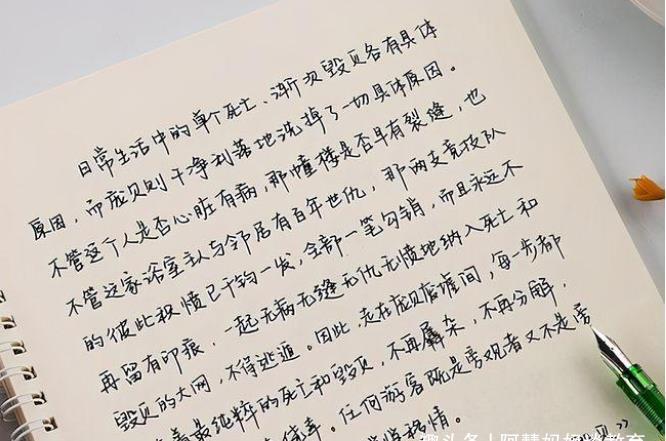 日常生活中的单个死亡、渐次毁灭各有具体
原因，而庞贝则干净利落地洗掉了一切具体原因。
不管这个人是否心脏有病，那幢楼是否早有裂缝，也
不管这家浴室主人与邻居有百年世仇，那两支竞技队
的彼此积愤已千钧一发，全部一笔勾销，而且永远不
再留有印痕，一起无病无缝无仇无愤地纳入死亡和
毁灭的大网，不得逃遁。因此，走在庞贝废墟间，每一步都
着最纯粹的死亡和毁灭，不再羼杂，不再分解，
侥幸。任何游客既是旁观者又不是旁